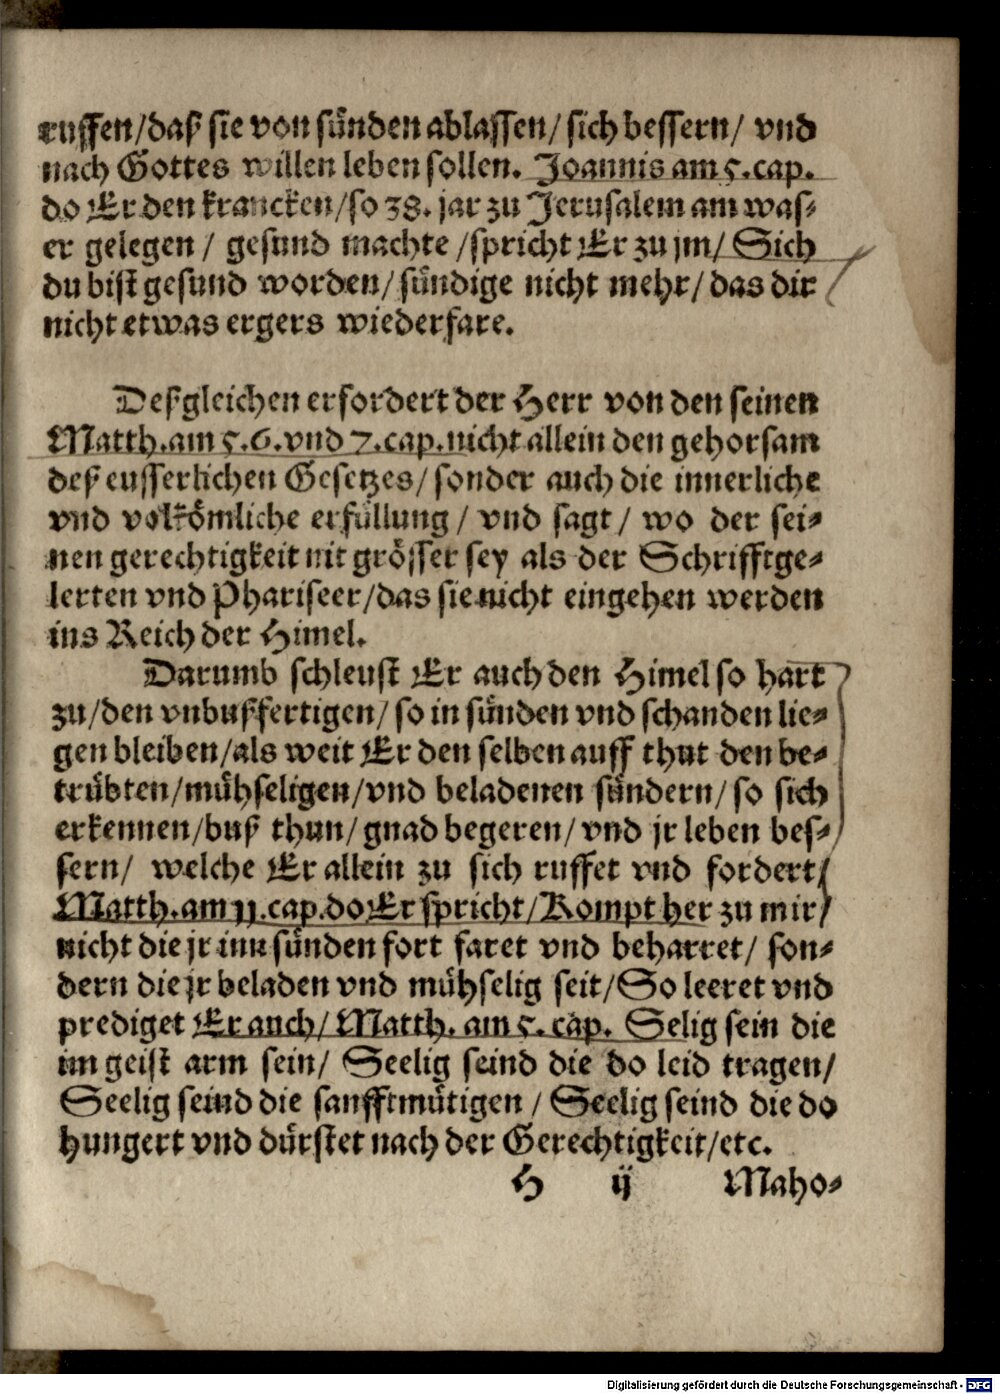 ruffen/daß sie von sünden ablassen/ sich bessern/ vnd
nach Gottes willen leben sollen. Joannis am 5. cap.
do Er den krancken/so 38. jar zu Jerusalem am was⸗
er gelegen / gesund machte /spricht Er zu jm/ Sich
du bist gesund worden/ sündige nicht mehr/ das dir
nicht etwas ergers wiederfare.
Deßgleichen erfordert der Herr von den seinen
Matth.am 5.6.vnd 7.cap.nicht allein den gehorsam
deß eusserlichen Gesetzes/ sonder auch die innerliche
vnd volkömliche erfüllung / vnd sagt/ wo der sei⸗
nen gerechtigkeit nit grösser sey als der Schrifftge⸗
lerten vnd Phariseer/das sie nicht eingehen werden
ins Reich der Himel.
Darumb schleust Er auch den Himel so hart
zu/den vnbußfertigen/ so in sünden vnd schanden lie⸗
gen bleiben/als weit Er den selben auff thut den be⸗
trübten/mühseligen/vnd beladenen sündern/ so sich
erkennen/buß thun/ gnad begeren/ vnd jr leben bes⸗
sern/ welche Er allein zu sich ruffet vnd fordert/
Matth.am 11.cap.do Er spricht/Kompt her zu mir/
nicht die jr inn sünden fort faret vnd beharret/ son⸗
dern die jr beladen vnd mühselig seit/So leeret vnd
prediget Er auch/ Matth. am 5. cap. Selig sein die
im geist arm sein/ Seelig seind die do leid tragen/
Seelig seind die sanfftmütigen / Seelig seind die do
hungert vnd dürstet nach der Gerechtigkeit/etc.
H ij Maho⸗
Digitalisierung gefördert durch die Deutsche Forschungsgemeinschaft - DFG